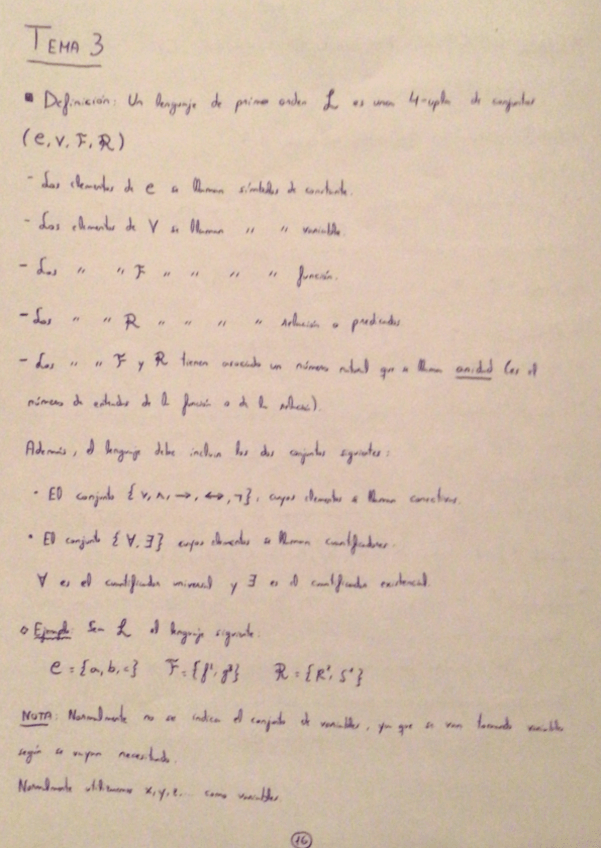 TEMA 3
▪ Definición: Un lenguaje de primer orden L es una 4-upla de conjuntos
(C, V, F, R)
- Los elementos de C se llaman símbolos de constante.
- Los elementos de V se llaman " " variable.
- Los " " F " " " " función.
- Los " " R " " " " relación o predicados
- Los " " F y R tienen asociado un número natural que se llama aridad (es el
número de entradas de la función o de la relación).
Además, el lenguaje debe incluir los dos conjuntos siguientes:
• El conjunto {∨, ∧, →, ↔, ¬}, cuyos elementos se llaman conectivas.
• El conjunto {∀, ∃} cuyos elementos se llaman cuantificadores.
∀ es el cuantificador universal y ∃ es el cuantificador existencial.
◦ Ejemplo: Sea L el lenguaje siguiente:
C = {a, b, c} F = { } R = { }
NOTA: Normalmente no se indica el conjunto de variables, ya que se van tomando variables
según se vayan necesitando.
Normalmente utilizamos x, y, z, ... como variables.
16